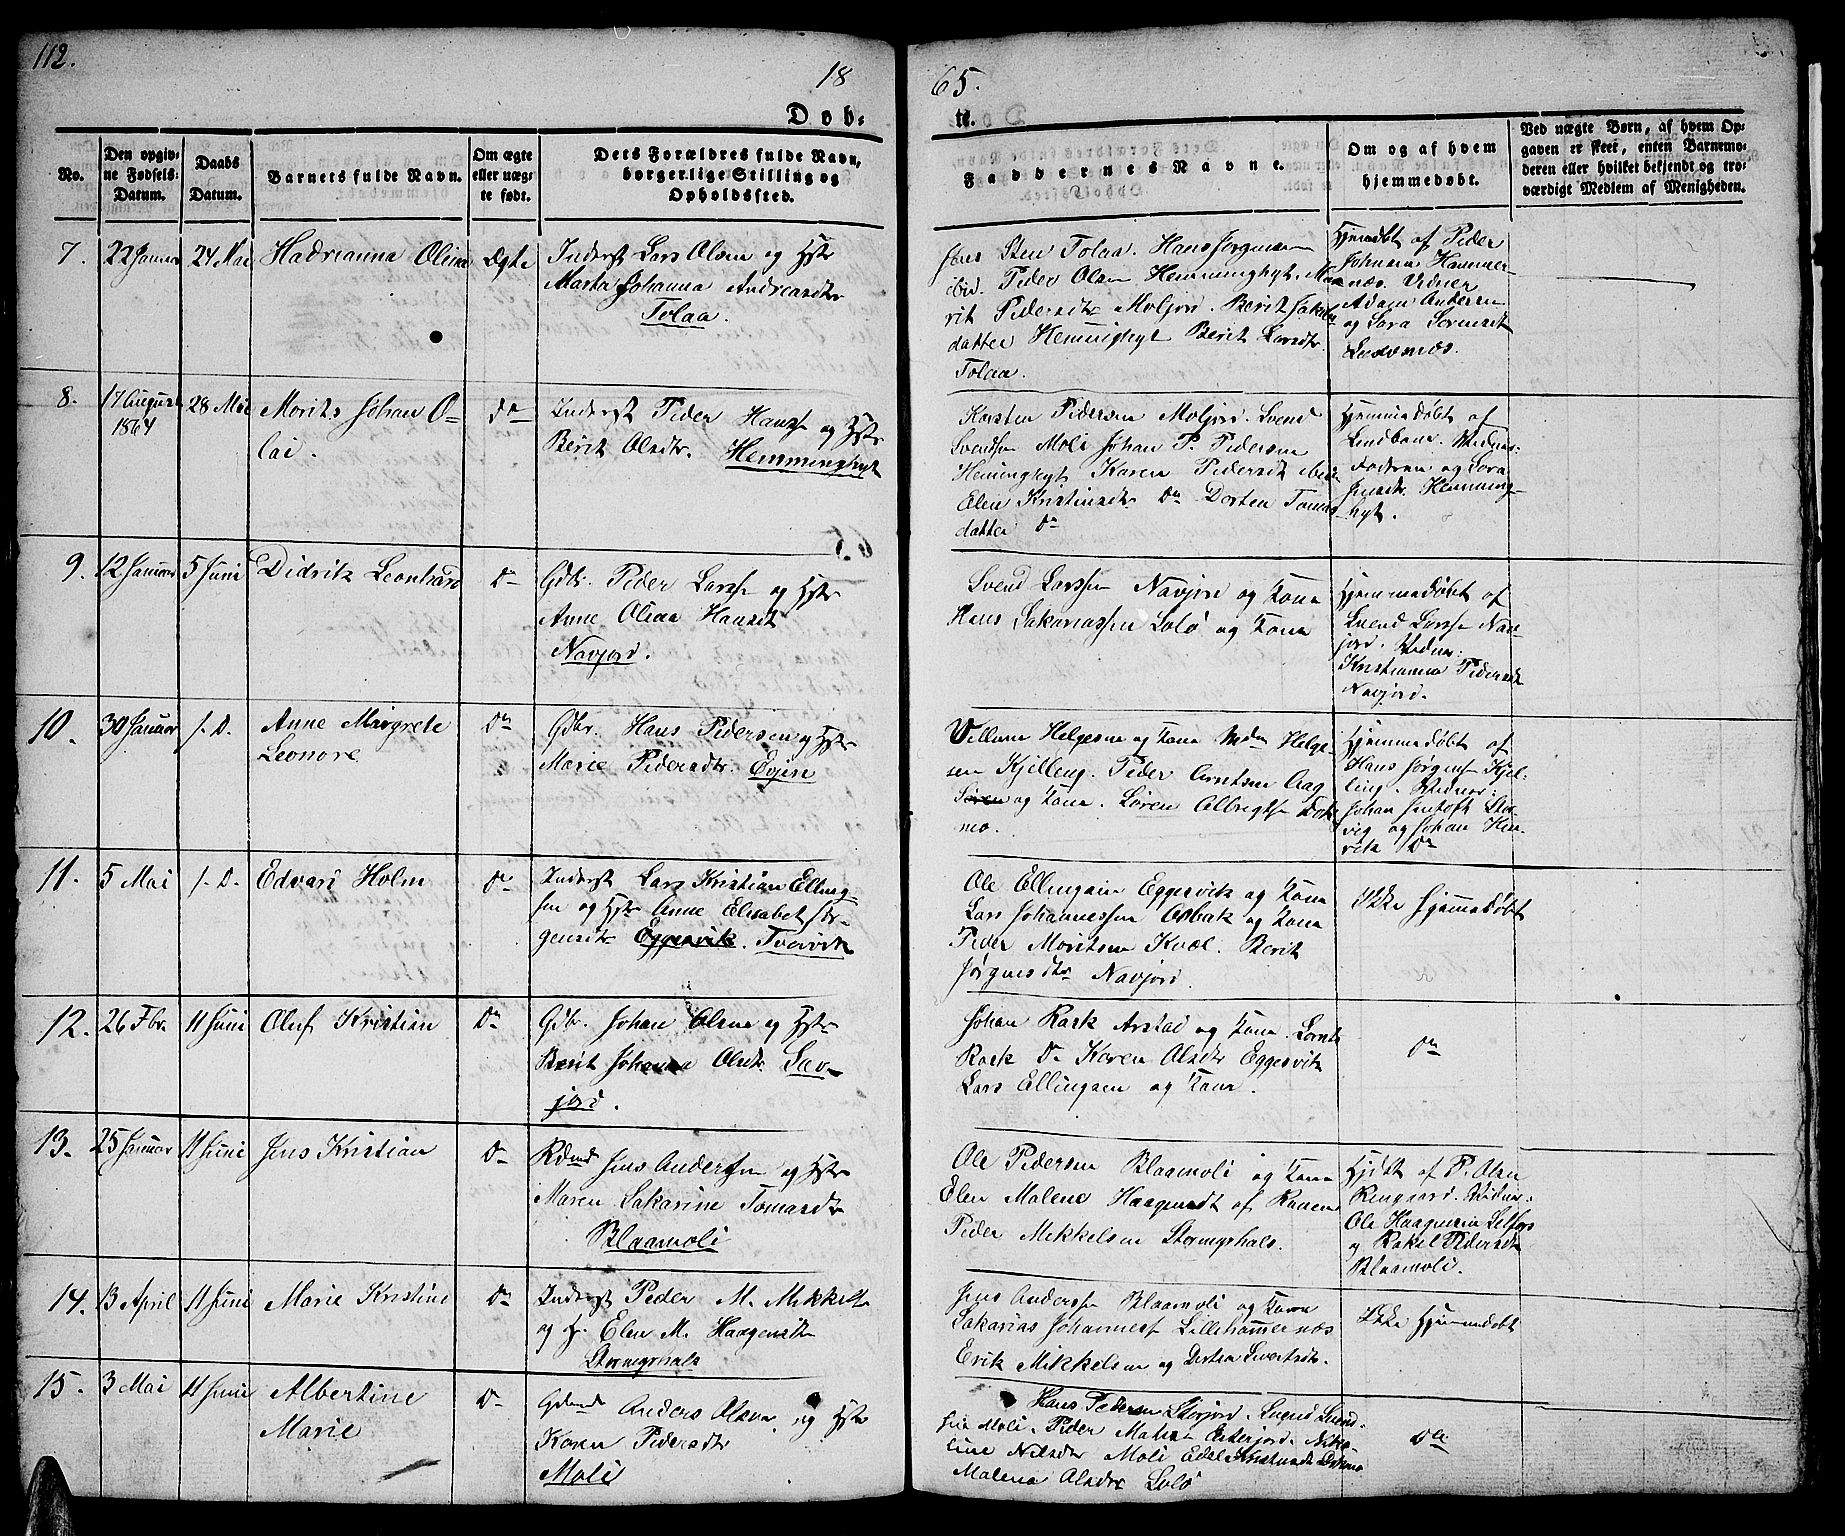 112.
18
65.
Døb-
te.
No.
Den opgiv-
ne Fødsels-
Datum.
Daabs
Datum.
Barnets fulde Navn.
Om ægte
eller uæg-
te født.
Dets Forældres fulde Navn,
borgerlige Stilling og
Opholdssted.
Faddernes Navne.
Om og af hvem
hjemmedøbt.
Ved uægte Børn, af hvem Op-
gaven er skeet, enten Barnemo-
deren eller hvilket bekjendt og tro-
værdigt Medlem af Menigheden.
7.
22 Januar
24 Mai
Hadrianna Olina
Ægte
Inderst Lars Olsen og Hstr
Marta Johanna Andreasdtr
Tolaa.
Jens Sten Tolaa. Hans Jørgensen
Peder Olsen Hemminghyt.
rit Pedersdtr Moljord. Berit
datter Hemminghyt Berit Larsdtr
Tolaa.
Hjemdøbt af Peder
Johnsen Hammer-
næs. Vidner
Adam Andersen
og Sara
8.
17 August
1864
28 Mai
Morits Johan O-
lai.
Do
Inderst Peder Hanss og Hstr
Berit Olsdtr. Hemminghyt
Karsten Pedersen Moljord. Svend
Svendsen Moli Johan P. Pedersen
Hemminghyt Karen Pedersdt
Elen Kristinsdtr Do Dorten Tomas-
datter Do
Hjemmedøbt af
Fadren og Sara
Jensdtr. Hemming-
hyt.
9.
12 Januar
5 Juni
Didrik Leonhard
Do
Gdbr. Peder Larss og Hstr
Anne Olina Hansdt
Navjord.
Svend Larssen Navjord og Kona
Hans Sakariassen Solø og Kona
Hjemmedøbt af
Svend Larss Nav-
jord. Vidner:
Kristianna Pedersdt
Navjord.
10.
30 Januar
s. D.
Anne Margrete
Leonore
Do
Gdbr. Hans Pedersen og Hstr
Marie Pedersdtr. Evjen
Villum Helgesen og Kona Helge-
sen Kjelling. Peder Arntsen Aag
Søren og Kona. Søren Albregts
mo.
Hjemmedøbt af
Hans Jørgens Kjel-
ling. Vidner:
Johan Jentoft Stor-
vig og Johan
vik Do
11.
5 Mai
s. D.
Edvard Holm
Do
Inderst Lars Kristian Elling-
sen og Hstr Anne Elisabet Jør-
gensdtr Eggesvik. Tvervik
Ole Ellingsen Eggesvik og Kona
Lars Johannessen Osbak og Kona
Peder Moritsen Kvæl. Berit
Jørgensdtr Navjord.
Ikke hjemmedøbt
12.
26 Fbr.
11 Juni
Oluf Kristian
Do
Gdbr. Johan Olsen og Hstr
Berit Johanna Olsdt. Sæv-
jord.
Johan Rask Arstad og Kona.
Rask Do Karen Olsdtr Eggesvik
Lars Ellingsen og Kona.
Do
13.
25 Januar
11 Juni
Jens Kristian
Do
Jens Andersen og Hstr
Maren Sakarine Tomasdtr
Blaamoli
Ole Pedersen Blaamoli og Kona
Elen Malena Haagensdt af Ranen
Peder Mikkelsen Stormyrhals.
Hjdbt af P. Olsen
Rengaard. Vidner:
Ole Haagensen
og Rakel Pedersdt
Blaamoli.
14.
13 April
11 Juni
Marie Kristine
Do
Inderst Peder M. Mikkels
og H. Elen M. Haagensdtr
Stormyrhals
Jens Anderss Blaamoli og Kona
Sakarias Johanness Lillehammernæs
Erik Mikkelsen og Dorten Sivertsdtr.
Ikke hjemmedøbt
15.
3 Mai
11 Juni
Albertine
Marie
Do
Anders Olsen og Hstr
Karen Pedersdtr
Moli
Hans Pedersen Storjord. Svend Svend-
sen Moli. Peder
line Nilsdtr Moli Edel Kristensdt
Malena Olsdtr Solø
Do